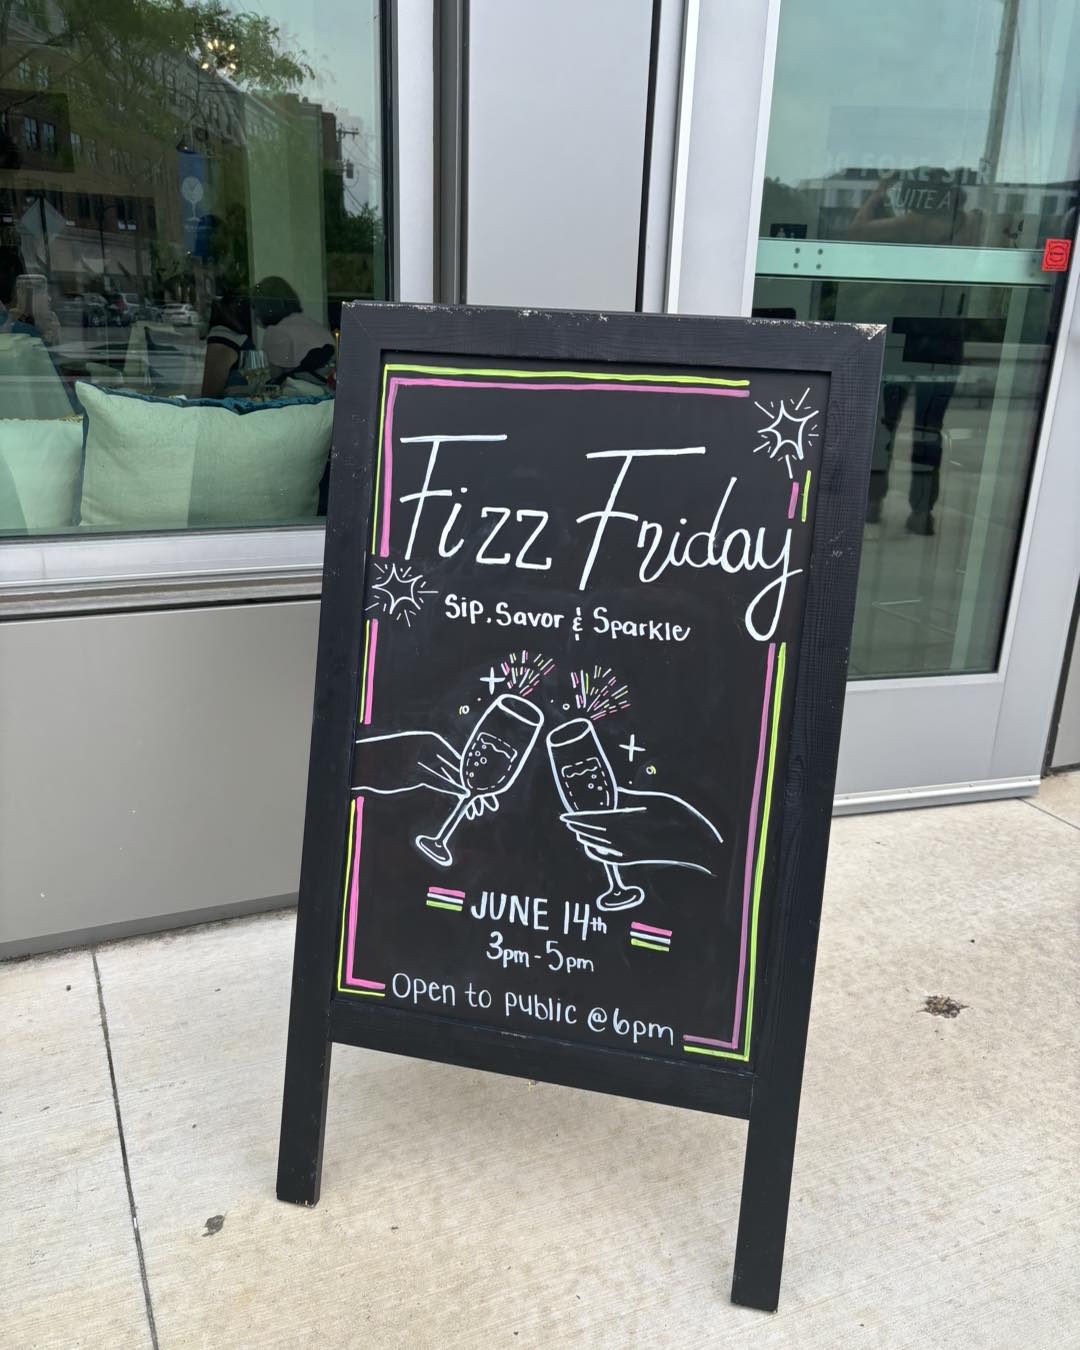 Fizz Friday
Sip, Savor & Sparkle
JUNE 14th
3pm-5pm
Open to public @6pm
SUITE A